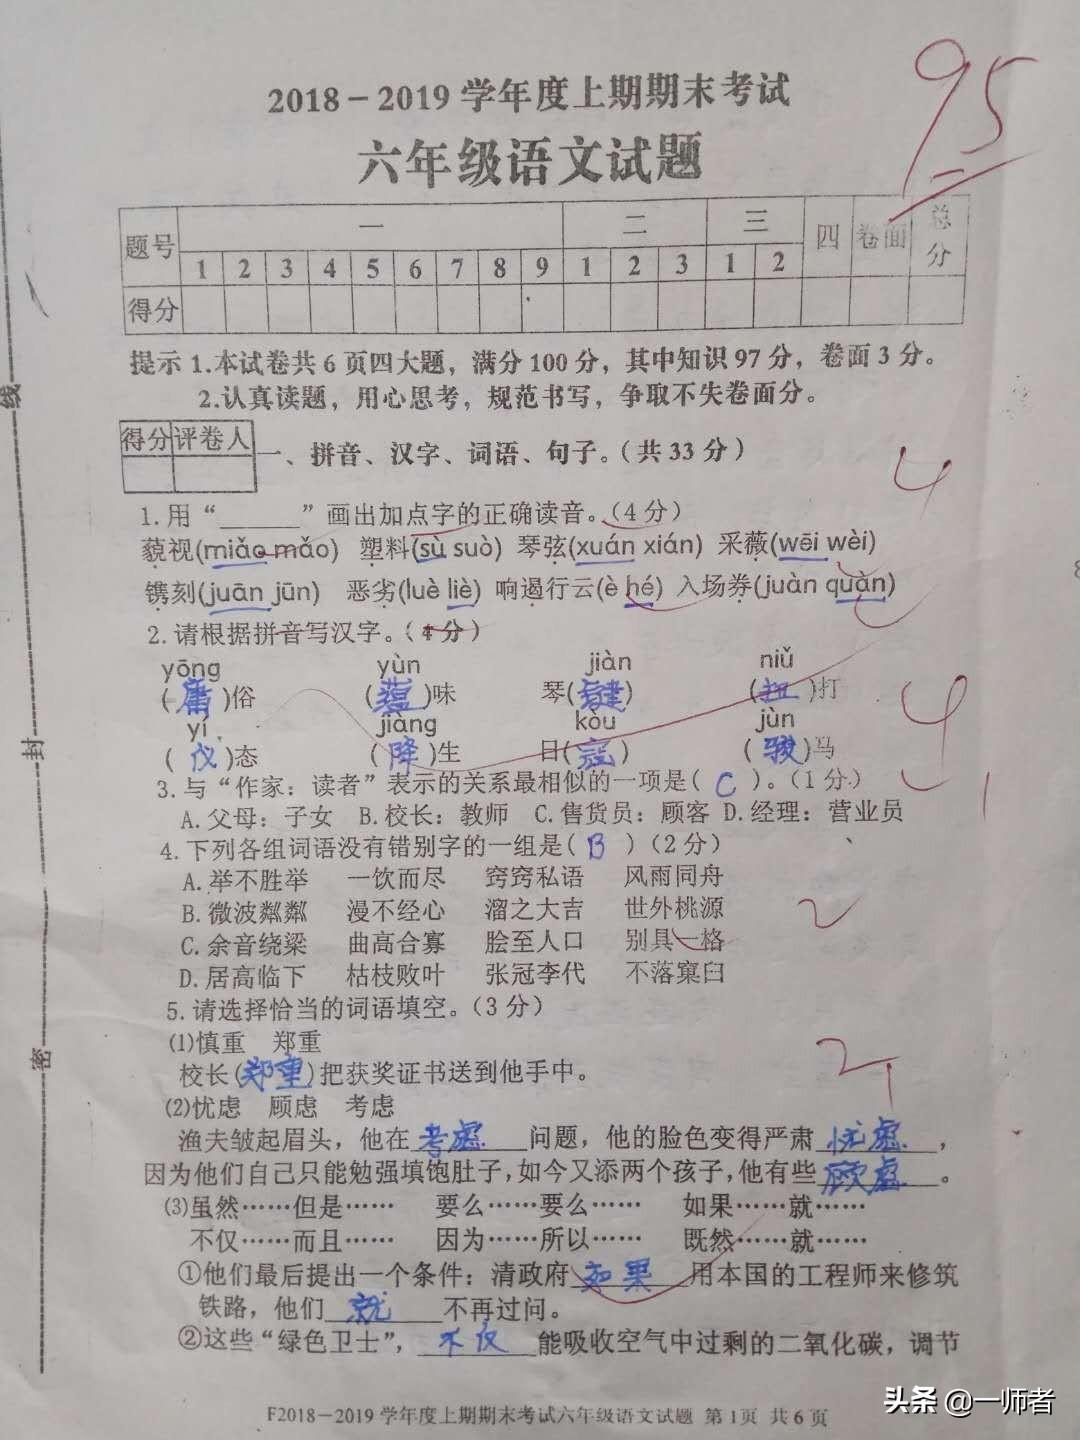 95
2018－2019学年度上期期末考试
六年级语文试题
题号 一 二 三 四 卷面 总分
1 2 3 4 5 6 7 8 9 1 2 3 1 2
得分
提示 1.本试卷共6页四大题，满分100分，其中知识97分，卷面3分。
2.认真读题，用心思考，规范书写，争取不失卷面分。
得分 评卷人
一、拼音、汉字、词语、句子。（共33分）
4
1.用“______”画出加点字的正确读音。（4分）
藐视(miǎo mǎo) 塑料(sù suò) 琴弦(xuán xián) 采薇(wēi wèi)
镌刻(juān jūn) 恶劣(luè liè) 响遏行云(è hé) 入场券(juàn quàn)
2.请根据拼音写汉字。（4分）
yōng yùn jiàn niǔ
(庸)俗 (蕴)味 琴(键) (扭)打
4
yí jiàng kòu jùn
(仪)态 (降)生 日(寇) (骏)马
3.与“作家：读者”表示的关系最相似的一项是(C)。（1分）
1
A.父母：子女 B.校长：教师 C.售货员：顾客 D.经理：营业员
4.下列各组词语没有错别字的一组是(B)（2分）
A.举不胜举 一饮而尽 窍窍私语 风雨同舟
B.微波粼粼 漫不经心 溜之大吉 世外桃源
2
C.余音绕梁 曲高合寡 脍至人口 别具一格
D.居高临下 枯枝败叶 张冠李代 不落窠臼
5.请选择恰当的词语填空。（3分）
⑴慎重 郑重
校长(郑重)把获奖证书送到他手中。
2
⑵忧虑 顾虑 考虑
渔夫皱起眉头，他在考虑问题，他的脸色变得严肃忧虑，
因为他们自己只能勉强填饱肚子，如今又添两个孩子，他有些顾虑。
⑶虽然……但是…… 要么……要么…… 如果……就……
不仅……而且…… 因为……所以…… 既然……就……
①他们最后提出一个条件：清政府如果用本国的工程师来修筑
铁路，他们就不再过问。
②这些“绿色卫士”，不仅能吸收空气中过剩的二氧化碳，调节
F2018－2019学年度上期期末考试六年级语文试题 第1页 共6页
线
封
密
头条 @一师者